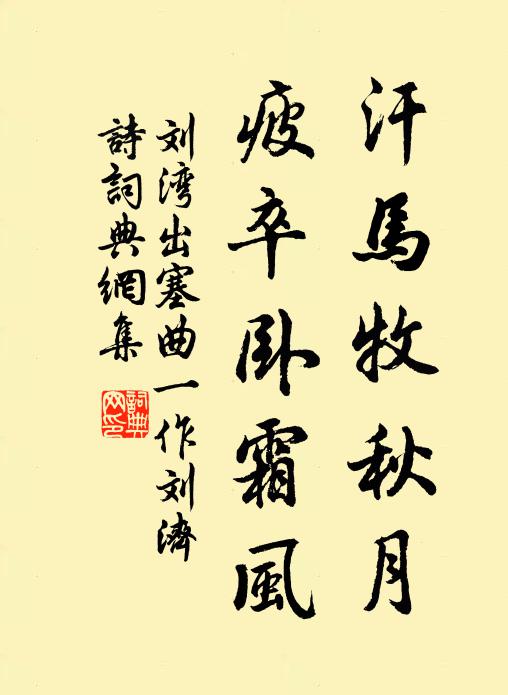 汗馬牧秋月
疲卒卧霜風
刘湾出塞曲一作刘濟
詩詞典網集
詞典网印